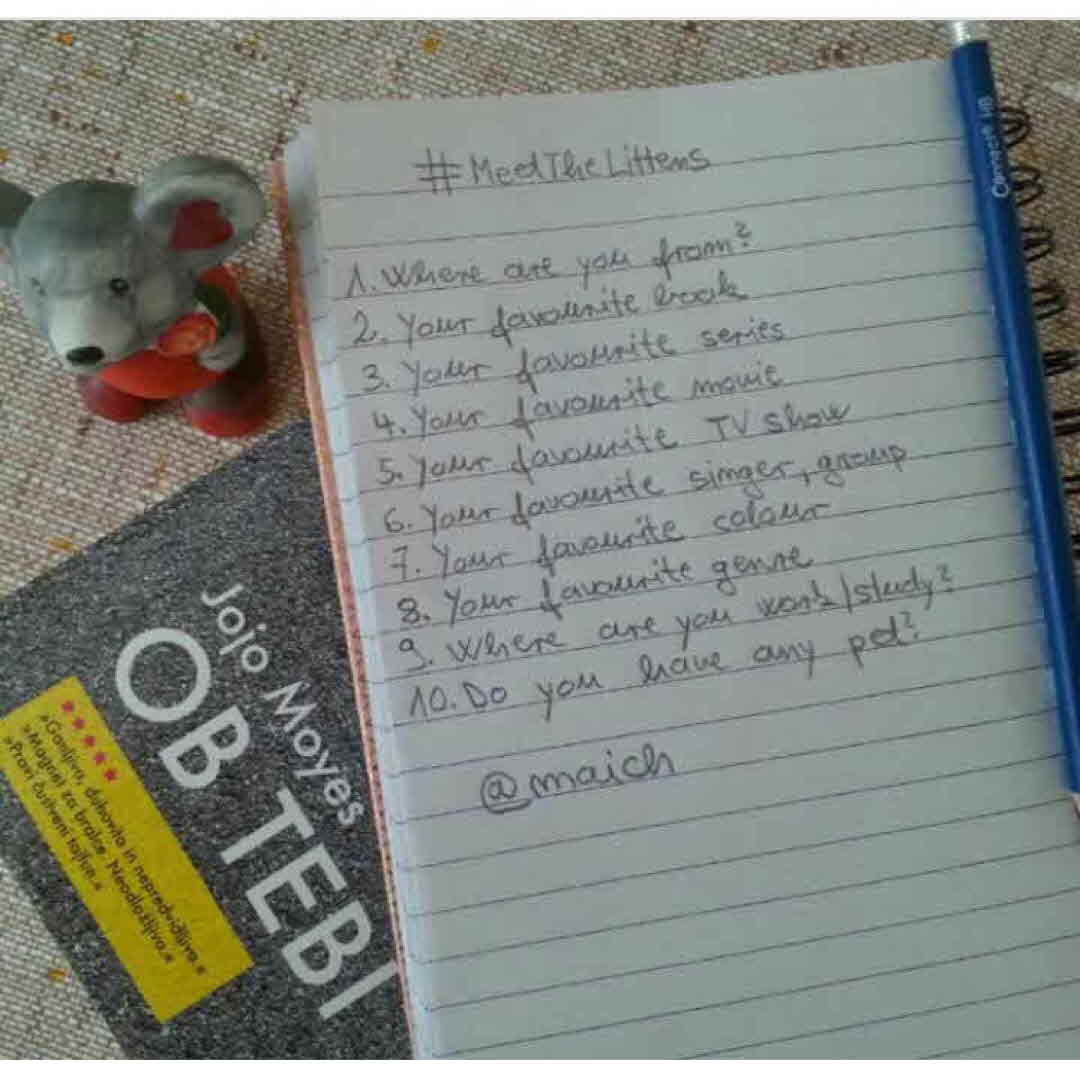 #MeetTheLittens
1. Where are you from?
2. Your favourite book
3. Your favourite series
4. Your favourite movie
5. Your favourite TV show
6. Your favourite singer, group
7. Your favourite colour
8. Your favourite genre
9. Where are you work/study?
10. Do you have any pet?
@maich
Jojo Moyes
OB TEBI
»Ganljivo, duhovito in nepredvidljivo.«
»Magnet za bralce. Neodložljivo.«
»Pravi čustveni tajfun.«
HB